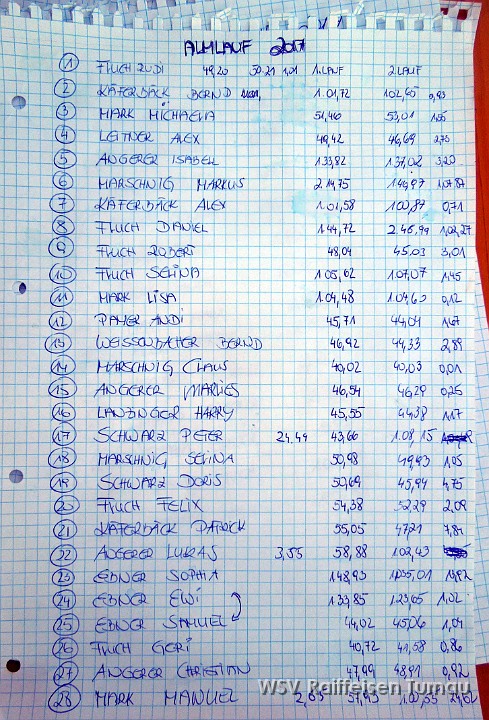 ALMLAUF 2017
1 FLUCH RUDI 49,20 50,21 1,01 1. LAUF 2 LAUF
2 KÄFERBÄCK BERND 1.01,72 102,65 0,93
3 MARK MICHAELA 51,46 53,01 1,55
4 LEITNER ALEX 49,42 46,69 2,73
5 ANGERER ISABEL 133,82 137,02 3,20
6 MARSCHNIG MARKUS 2.14,75
7 KÄFERBÄCK ALEX 1.01,58 100,87 0,71
8 FLUCH DANIEL 144,72 2.46,99 1,02,27
9 FLUCH ROBERT 48,04 45,03 3,01
10 FLUCH SELINA 105,62 107,07 1,45
11 MARK LISA 104,48 104,60 0,12
12 PAMER ANDI 45,71 44,04 1,67
13 WEISSENBACHER BERND 46,92 44,33 2,89
14 MARSCHNIG CLAUS 40,02 40,03 0,01
15 ANGERER MARLIES 46,54 46,29 0,25
16 LANZINGER HARRY 45,55 44,38 1,17
17 SCHWARZ PETER 24,49 43,66 1.08,15
18 MARSCHNIG SELINA 50,98 49,93 1,05
19 SCHWARZ DORIS 50,69 45,94 4,75
20 FLUCH FELIX 54,38 52,29 2,09
21 KÄFERBÄCK PATRICK 55,05 47,21 7,84
22 ANGERER LUKAS 3,55 58,88 102,43
23 EBNER SOPHIA 148,93 13,92
24 EBNER ELVI 133,85 1,02
25 EBNER SAMUEL 44,02 45,06 1,04
26 FLUCH GERI 40,72 41,58 0,86
27 ANGERER CHRISTIAN 47,99 48,91 0,92
28 MARK MANUEL 2,65
WSV Raiffeisen Turnau